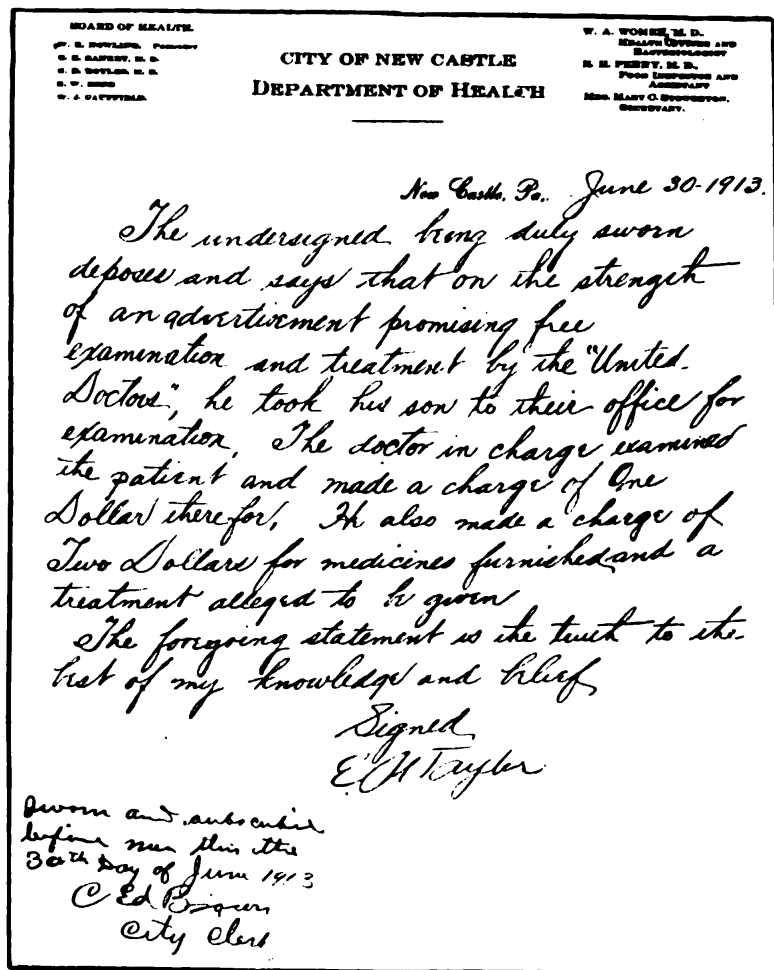 BOARD OF HEALTH.
CITY OF NEW CASTLE
DEPARTMENT OF HEALTH
W. A. WOMER, M. D.
HEALTH OFFICER AND
BACTERIOLOGIST
PERRY, M. D.,
FOOD INSPECTOR AND
ASSISTANT
MRS. MARY C. STOUGHTON,
SECRETARY.
New Castle, Pa., June 30-1913.
The undersigned being duly sworn
deposes and says that on the strength
of an advertisement promising free
examination and treatment by the "United
Doctors", he took his son to their office for
examination. The doctor in charge examined
the patient and made a charge of One
Dollar therefor. He also made a charge of
Two Dollars for medicines furnished and a
treatment alleged to be given
The foregoing statement is the truth to the
best of my knowledge and belief
Signed
E. H Taylor
Sworn and subscribed
before me this the
30th Day of June 1913
C Ed Brown
City Clerk